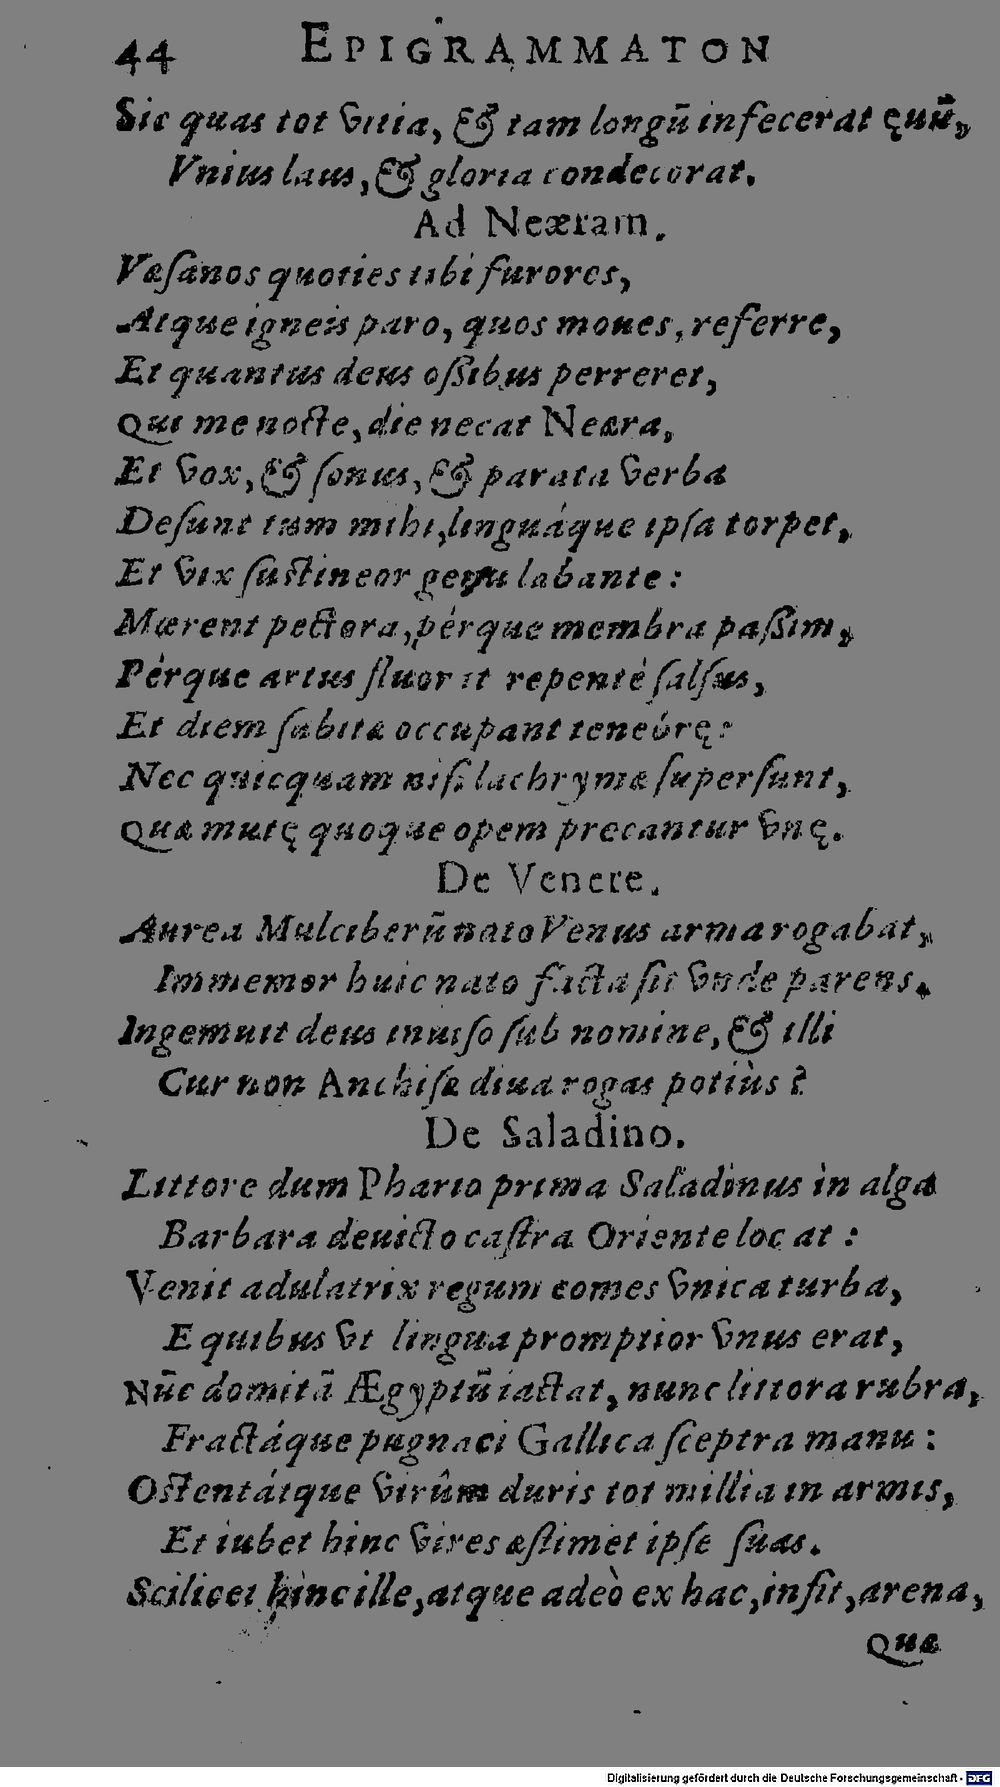 44 EPIGRAMMATON
Sic quas tot vitia, & tam longũ infecerat ęuũ,
Vnius laus, & gloria condecorat.
Ad Neæram.
Væſanos quoties tibi furores,
Atque igneis paro, quos mones, referre,
Et quantus deus oſsibus perreret,
Qui me nocte, die necat Neæra,
Et vox, & ſonus, & parata verba
Deſunt tum mihi, linguáque ipſa torpet,
Et vix ſuſtineor genu labante:
Mœrent pectora, pérque membra paſsim,
Pérque artus fluor it repentè ſalſus,
Et diem ſubitæ occupant tenebrę:
Nec quicquam niſi lachrymæ ſuperſunt,
Quæ mutę quoque opem precantur vnę.
De Venere.
Aurea Mulciberũ nato Venus arma rogabat,
Immemor huic nato facta ſit vnde parens.
Ingemuit deus inuiſo ſub nomine, & illi
Cur non Anchiſæ diua rogas potiùs?
De Saladino.
Littore dum Phario prima Saladinus in alga
Barbara deuicto caſtra Oriente locat:
Venit adulatrix regum comes vnica turba,
E quibus vt lingua promptior vnus erat,
Nũc domitã Ægyptũ iactat, nunc littora rubra,
Fractáque pugnaci Gallica ſceptra manu:
Oſtentátque virûm duris tot millia in armis,
Et iubet hinc vires æſtimet ipſe ſuas.
Scilicet hinc ille, atque adeò ex hac, inſit, arena,
Quæ
Digitalisierung gefördert durch die Deutsche Forschungsgemeinschaft - DFG